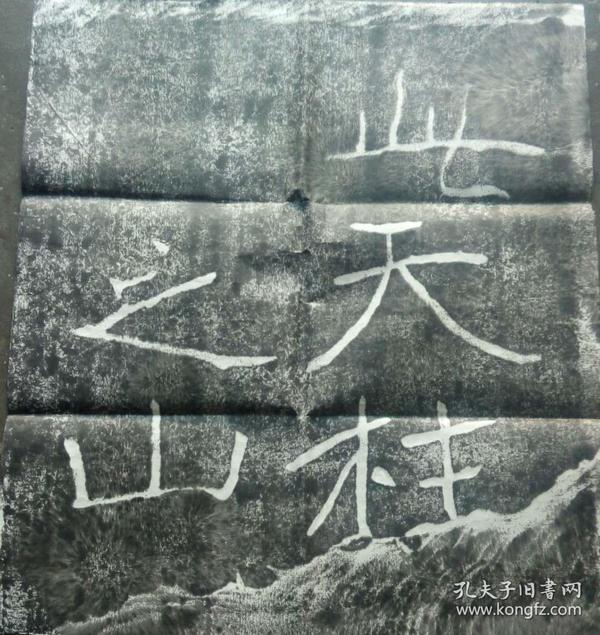 此天柱
之山
孔夫子旧書网
www.kongfz.com